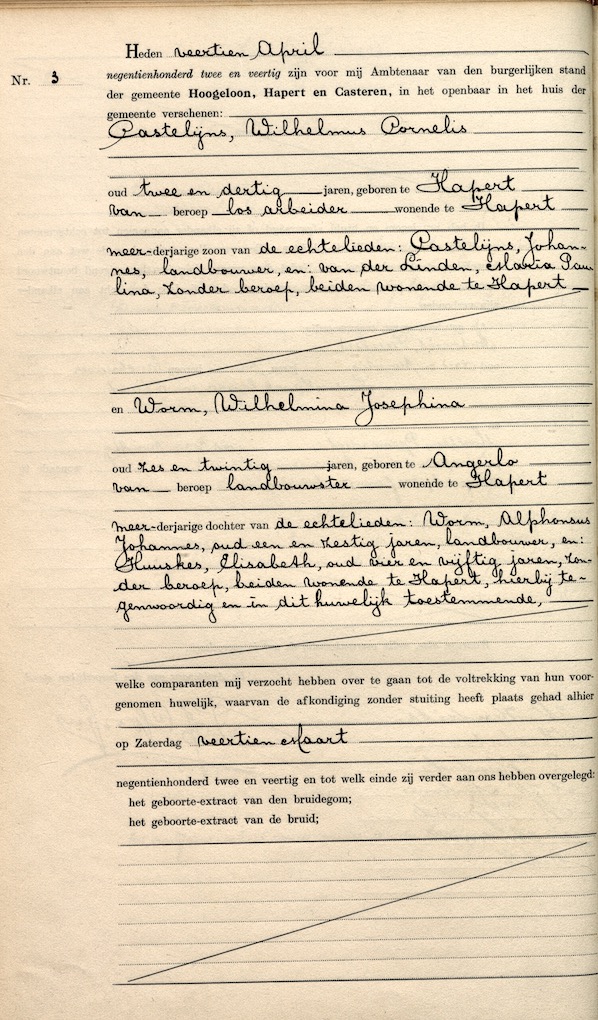 Nr. 3
Heden veertien April
negentienhonderd twee en veertig zijn voor mij Ambtenaar van den burgerlijken stand
der gemeente Hoogeloon, Hapert en Casteren, in het openbaar in het huis der
gemeente verschenen:
Castelijns, Wilhelmus Cornelis
oud twee en dertig jaren, geboren te Hapert
van beroep los arbeider wonende te Hapert
meer-derjarige zoon van de echtelieden: Castelijns, Johan-
nes, landbouwer, en: van der Linden, Maria Pau-
lina, zonder beroep, beiden wonende te Hapert
en Worm, Wilhelmina Josephina
oud zes en twintig jaren, geboren te Angerlo
van beroep landbouwster wonende te Hapert
meer-derjarige dochter van de echtelieden: Worm, Alphonsus
Johannes, oud een en zestig jaren, landbouwer, en:
Huuskes, Elisabeth, oud vier en vijftig jaren, zon-
der beroep, beiden wonende te Hapert, hierbij te-
genwoordig en in dit huwelijk toestemmende,
welke comparanten mij verzocht hebben over te gaan tot de voltrekking van hun voor-
genomen huwelijk, waarvan de afkondiging zonder stuiting heeft plaats gehad alhier
op Zaterdag veertien Maart
negentienhonderd twee en veertig en tot welk einde zij verder aan ons hebben overgelegd:
het geboorte-extract van den bruidegom;
het geboorte-extract van de bruid;